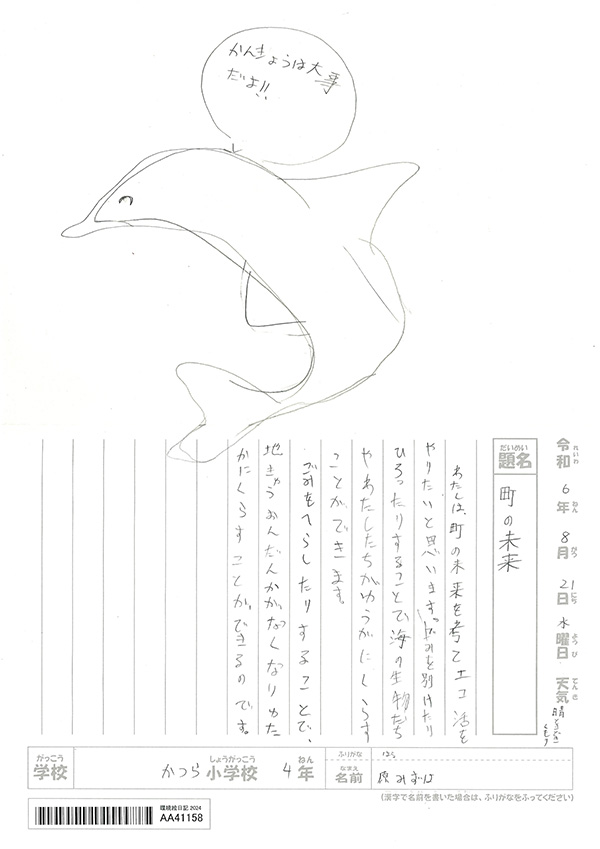 かんきょうは大事
だよ!!
令和6年8月21日水曜日 天気 晴ときどきくもり
れいわ ねん がつ にち ようび てんき
だいめい
題名 町の未来
わたしは、町の未来を考てエコ活を
やりたいと思います。ごみを別けたり
ひろったりすることで海の生物たち
やわたしたちがゆうがにくらす
ことができます。
ごみをへらしたりすることで、
地きゅうおんだんかがなくなりゆた
かにくらすことができるのです。
がっこう しょうがっこう ねん
学校 かつら小学校 4年
ふりがな はら
なまえ
名前 原みずは
(漢字で名前を書いた場合は、ふりがなをふってください)
環境絵日記 2024
AA41158